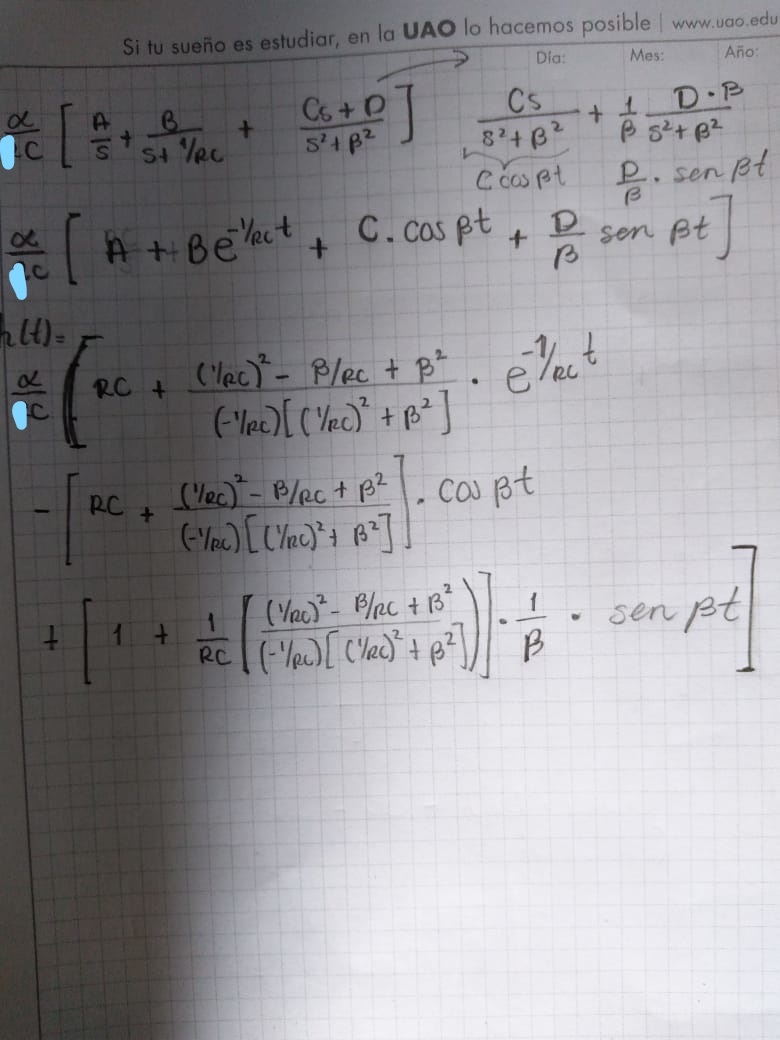 Si tu sueño es estudiar, en la UAO lo hacemos posible | www.uao.edu
Día: Mes: Año:
α/C [ A/s + B/(s + 1/RC) + (Cs + D)/(s² + β²) ] → Cs/(s² + β²) + 1/β D·β/(s² + β²)
C cos βt D/β · sen βt
α/C [ A + Be^(-1/RC t) + C. cos βt + D/β sen βt ]
h(t)=
α/C [ RC + ((1/RC)² - β/RC + β²)/((-1/RC)[(1/RC)² + β²]) · e^(-1/RC t)
- [ RC + ((1/RC)² - β/RC + β²)/((-1/RC)[(1/RC)² + β²]) ] · cos βt
+ [ 1 + 1/RC [ ((1/RC)² - β/RC + β²)/((-1/RC)[(1/RC)² + β²]) ) ] · 1/β · sen βt ]